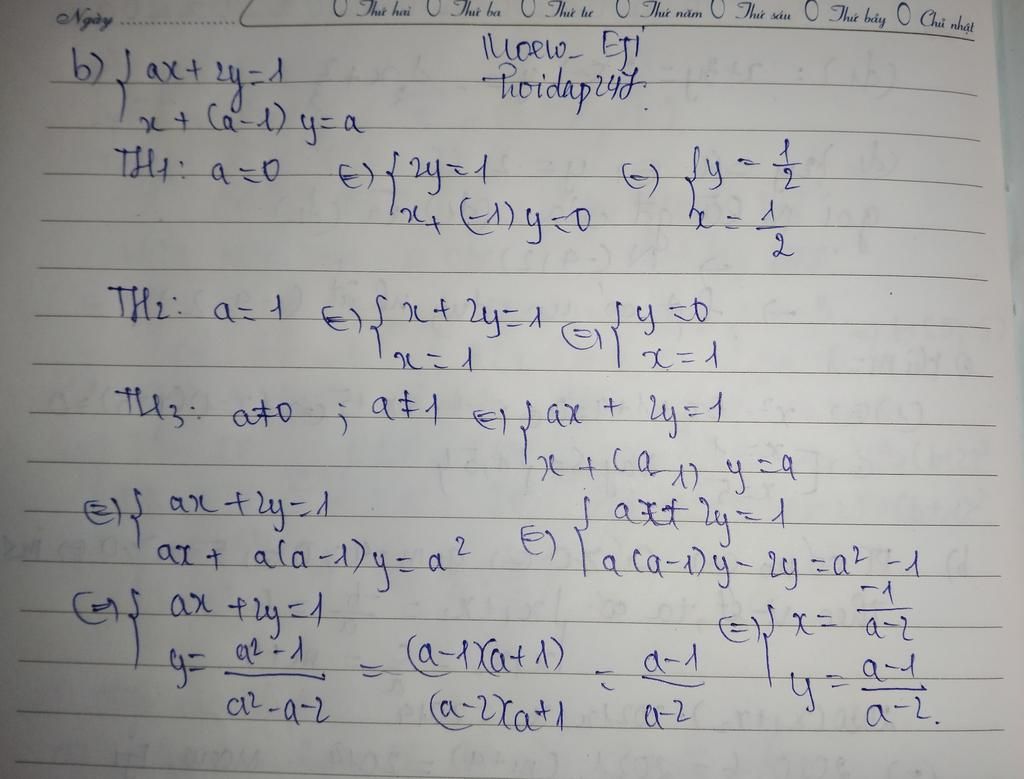 Ngày ..................... Thứ hai Thứ ba Thứ tư Thứ năm Thứ sáu Thứ bảy Chủ nhật
b) { ax + 2y = 1
x + (a-1) y = a
Hoidap247.
TH1: a = 0 <=> { 2y = 1 <=> { y = 1/2
x + (-1) y = 0 x = 1/2
TH2: a = 1 <=> { x + 2y = 1 <=> { y = 0
x = 1 x = 1
TH3: a ≠ 0 ; a ≠ 1 <=> { ax + 2y = 1
x + (a-1) y = a
<=> { ax + 2y = 1 <=> { ax + 2y = 1
ax + a(a-1)y = a² a(a-1)y - 2y = a² - 1
<=> { ax + 2y = 1 <=> { x = -1/a-2
y = a²-1/a²-a-2 = (a-1)(a+1)/(a-2)(a+1 = a-1/a-2 y = a-1/a-2.